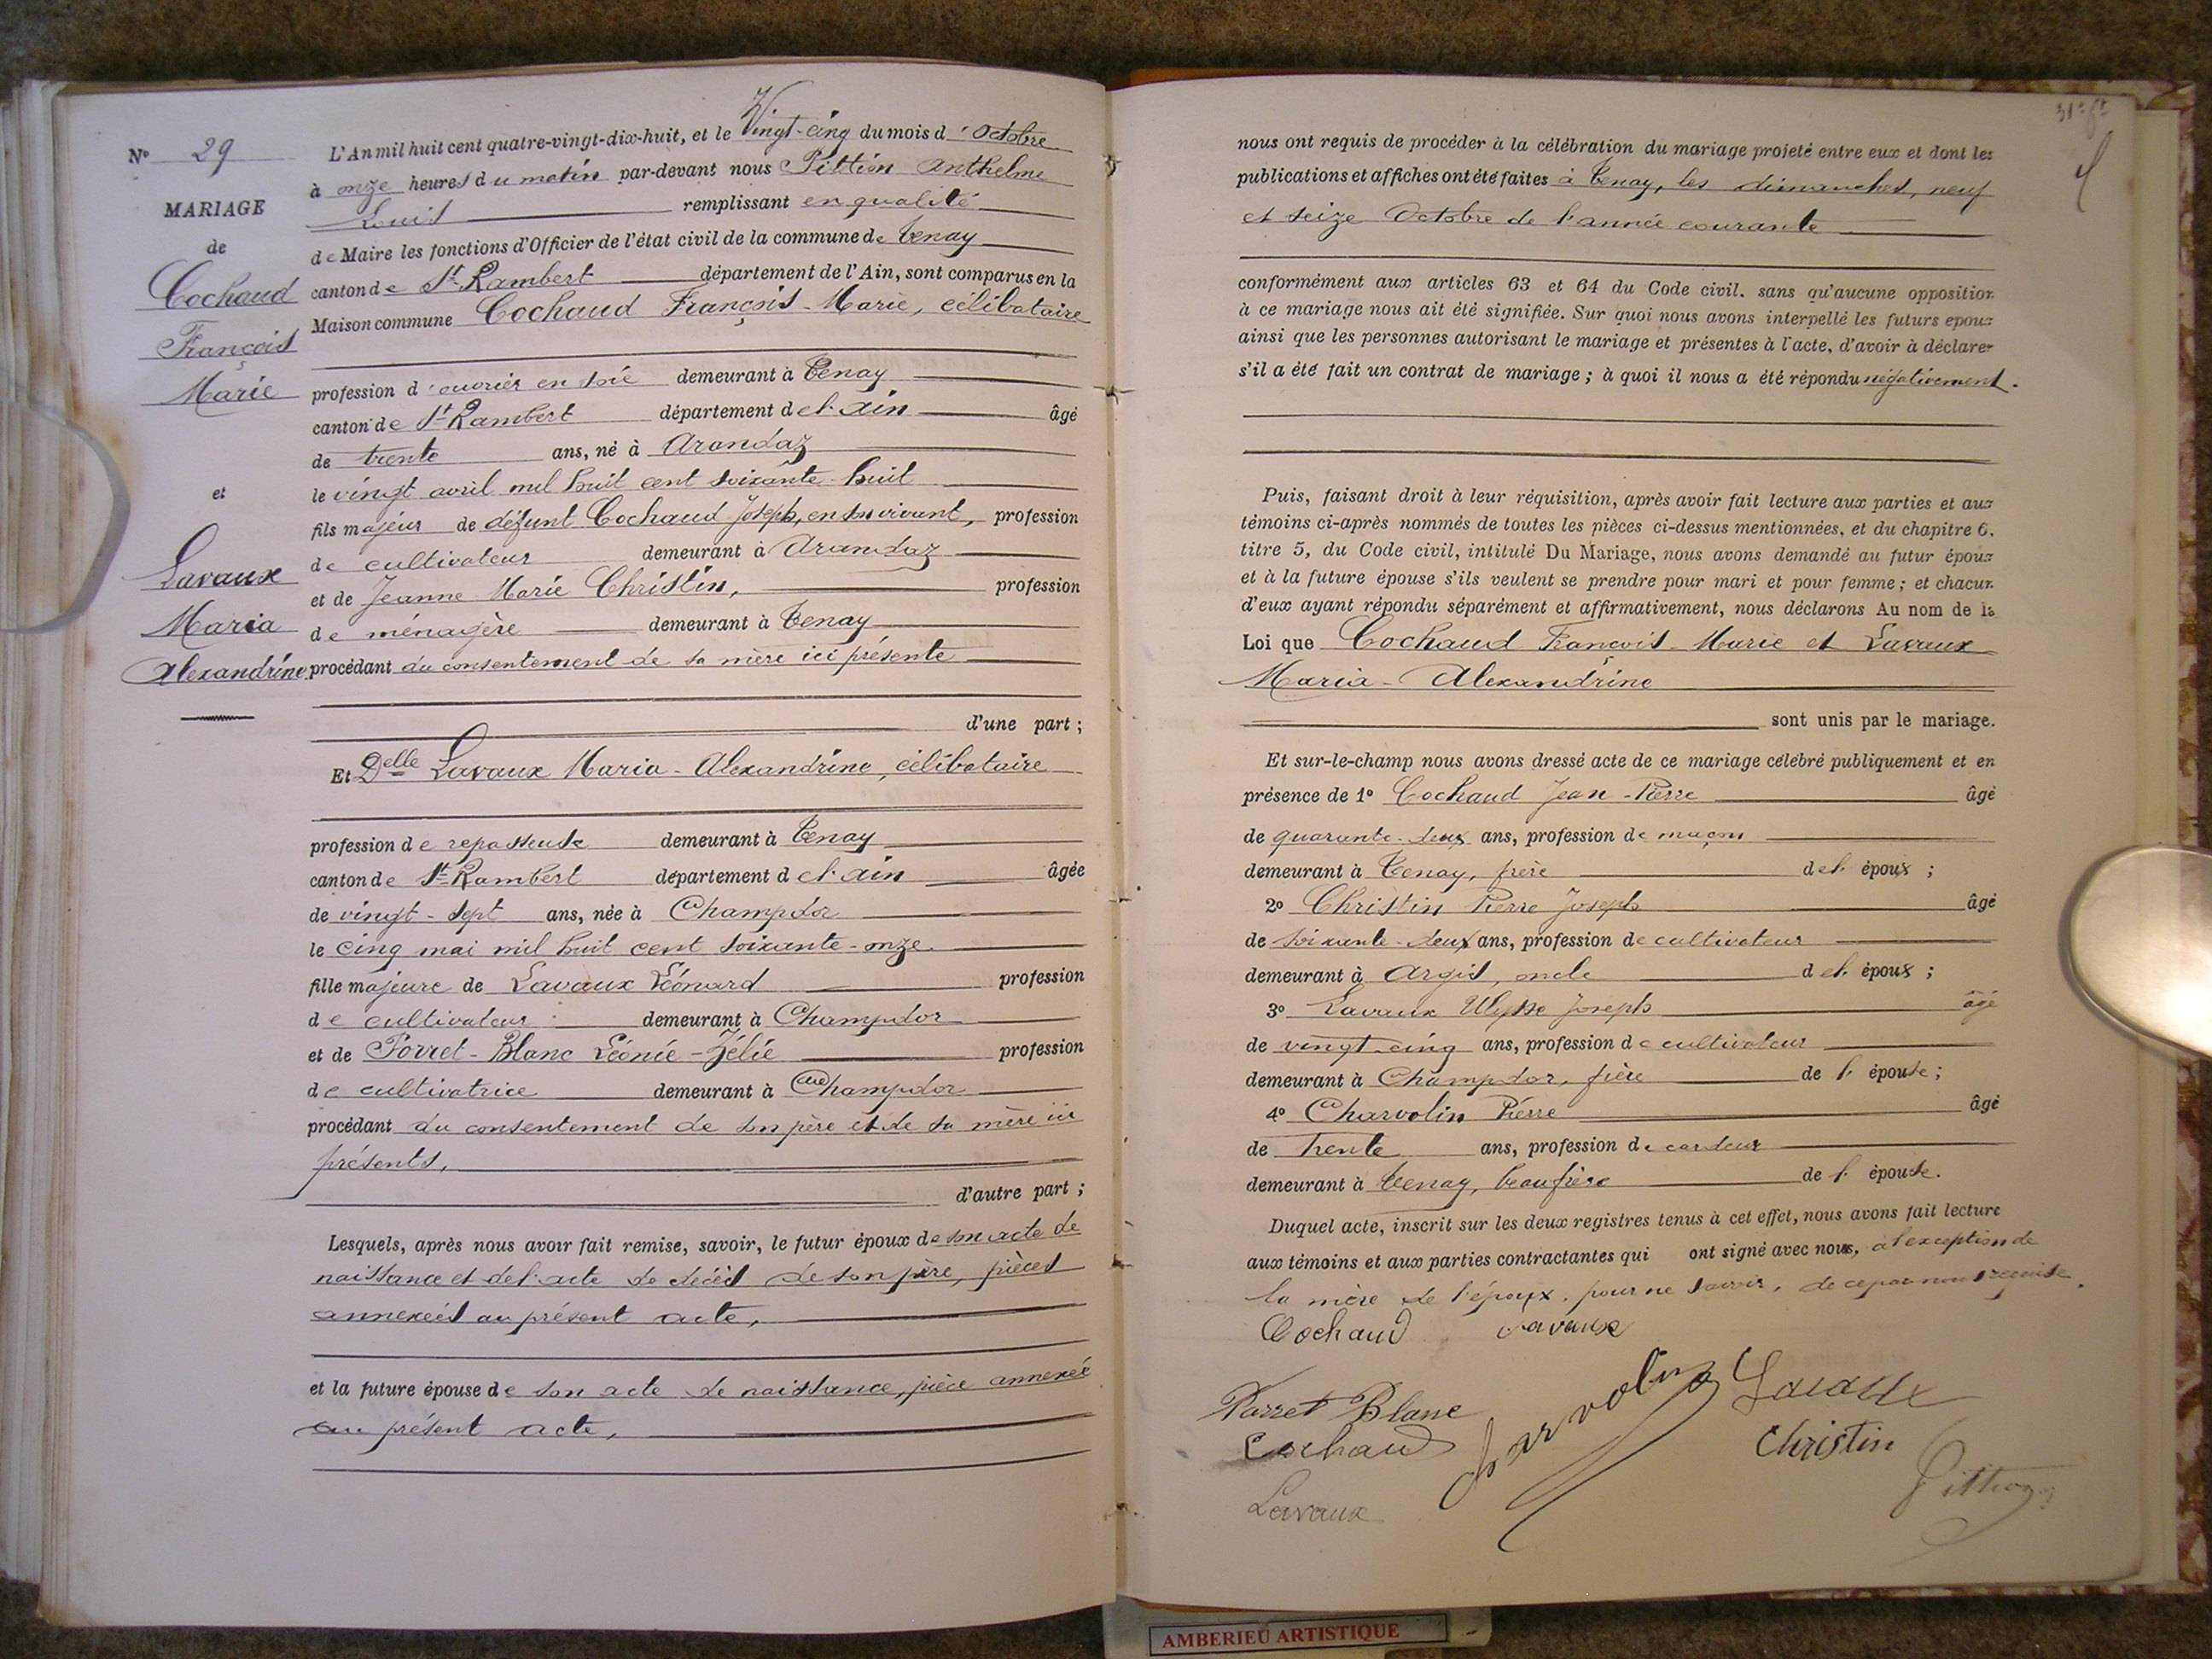 N° 29
MARIAGE
de
Cochaud
François
Marie
et
Lavaux
Maria
Alexandrine
L'An mil huit cent quatre-vingt-dix-huit, et le Vingt-cinq du mois d'Octobre
à onze heures du matin par-devant nous Pittion Anthelme
Louis remplissant en qualité
de Maire les fonctions d'Officier de l'état civil de la commune de Tenay
canton de St Rambert département de l'Ain, sont comparus en la
Maison commune Cochaud François-Marie, célibataire
profession d'ouvrier en soie demeurant à Tenay
canton de St Rambert département de l'Ain âgé
de trente ans, né à Arandaz
le vingt avril mil huit cent soixante-huit
fils majeur de défunt Cochaud Joseph, en son vivant, profession
de cultivateur demeurant à Arandaz
et de Jeanne Marie Christin, profession
de ménagère demeurant à Tenay
procédant du consentement de sa mère ici présente
d'une part ;
Et Delle Lavaux Maria-Alexandrine, célibataire
profession de repasseuse demeurant à Tenay
canton de St Rambert département de l'Ain âgée
de vingt-sept ans, née à Champdor
le cinq mai mil huit cent soixante-onze
fille majeure de Lavaux Léonard profession
de cultivateur demeurant à Champdor
et de Porret-Blanc Léonie-Zélie profession
de cultivatrice demeurant à Champdor
procédant du consentement de son père et de sa mère ici
présents,
d'autre part ;
Lesquels, après nous avoir fait remise, savoir, le futur époux de son acte de
naissance et de l'acte de décès de son père, pièces
annexées au présent acte,
et la future épouse de son acte de naissance, pièce annexée
au présent acte,
nous ont requis de procéder à la célébration du mariage projeté entre eux et dont les
publications et affiches ont été faites à Tenay, les dimanches, neuf
et seize Octobre de l'année courante
conformément aux articles 63 et 64 du Code civil. sans qu'aucune opposition
à ce mariage nous ait été signifiée. Sur quoi nous avons interpellé les futurs epoux
ainsi que les personnes autorisant le mariage et présentes à l'acte, d'avoir à déclarer
s'il a été fait un contrat de mariage ; à quoi il nous a été répondu négativement.
Puis, faisant droit à leur réquisition, après avoir fait lecture aux parties et aux
témoins ci-après nommés de toutes les pièces ci-dessus mentionnées, et du chapitre 6.
titre 5, du Code civil, intitulé Du Mariage, nous avons demandé au futur époux
et à la future épouse s'ils veulent se prendre pour mari et pour femme ; et chacun
d'eux ayant répondu séparément et affirmativement, nous déclarons Au nom de la
Loi que Cochaud François-Marie et Lavaux
Maria-Alexandrine
sont unis par le mariage.
Et sur-le-champ nous avons dressé acte de ce mariage célébré publiquement et en
présence de 1° Cochaud Jean-Pierre âgé
de quarante-deux ans, profession de maçon
demeurant à Tenay, frère de l'époux ;
2° Christin Pierre Joseph âgé
de soixante-deux ans, profession de cultivateur
demeurant à Argis, oncle de l'époux ;
3° Lavaux Ulysse Joseph âgé
de vingt-cinq ans, profession de cultivateur
demeurant à Champdor, frère de l'épouse ;
4° Charvolin Pierre âgé
de trente ans, profession de cardeur
demeurant à Tenay, beaufrère de l'épouse.
Duquel acte, inscrit sur les deux registres tenus à cet effet, nous avons fait lecture
aux témoins et aux parties contractantes qui ont signé avec nous, à l'exception de
la mère de l'époux, pour ne savoir, de ce par nous requise.
Cochaud Lavaux
Porret Blanc Charvolin Lavaux
Cochaud Christin
Lavaux Pittion
AMBERIEU ARTISTIQUE